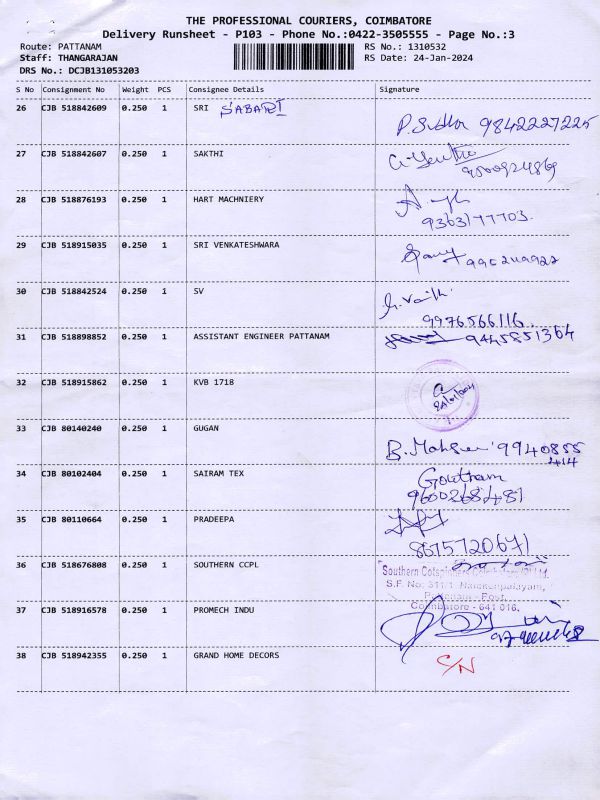 THE PROFESSIONAL COURIERS, COIMBATORE
Delivery Runsheet - P103 - Phone No.:0422-3505555 - Page No.:3
Route: PATTANAM RS No.: 1310532
Staff: THANGARAJAN RS Date: 24-Jan-2024
DRS No.: DCJB131053203
S No Consignment No Weight PCS Consignee Details Signature
26 CJB 518842609 0.250 1 SRI SABARI
P. Sudha 9842227225
27 CJB 518842607 0.250 1 SAKTHI
28 CJB 518876193 0.250 1 HART MACHNIERY
9363177703.
29 CJB 518915035 0.250 1 SRI VENKATESHWARA
30 CJB 518842524 0.250 1 SV
9976566116
31 CJB 518898852 0.250 1 ASSISTANT ENGINEER PATTANAM 9445851364
32 CJB 518915862 0.250 1 KVB 1718
33 CJB 80140240 0.250 1 GUGAN
9940855
414
34 CJB 80102404 0.250 1 SAIRAM TEX Gowtham
9600268481
35 CJB 80110664 0.250 1 PRADEEPA
8675720671
36 CJB 518676808 0.250 1 SOUTHERN CCPL
Southern
S.F. No: 311/1 Naickenpalayam,
Pattanam Post,
Coimbatore - 641 016.
37 CJB 518916578 0.250 1 PROMECH INDU
38 CJB 518942355 0.250 1 GRAND HOME DECORS C/N